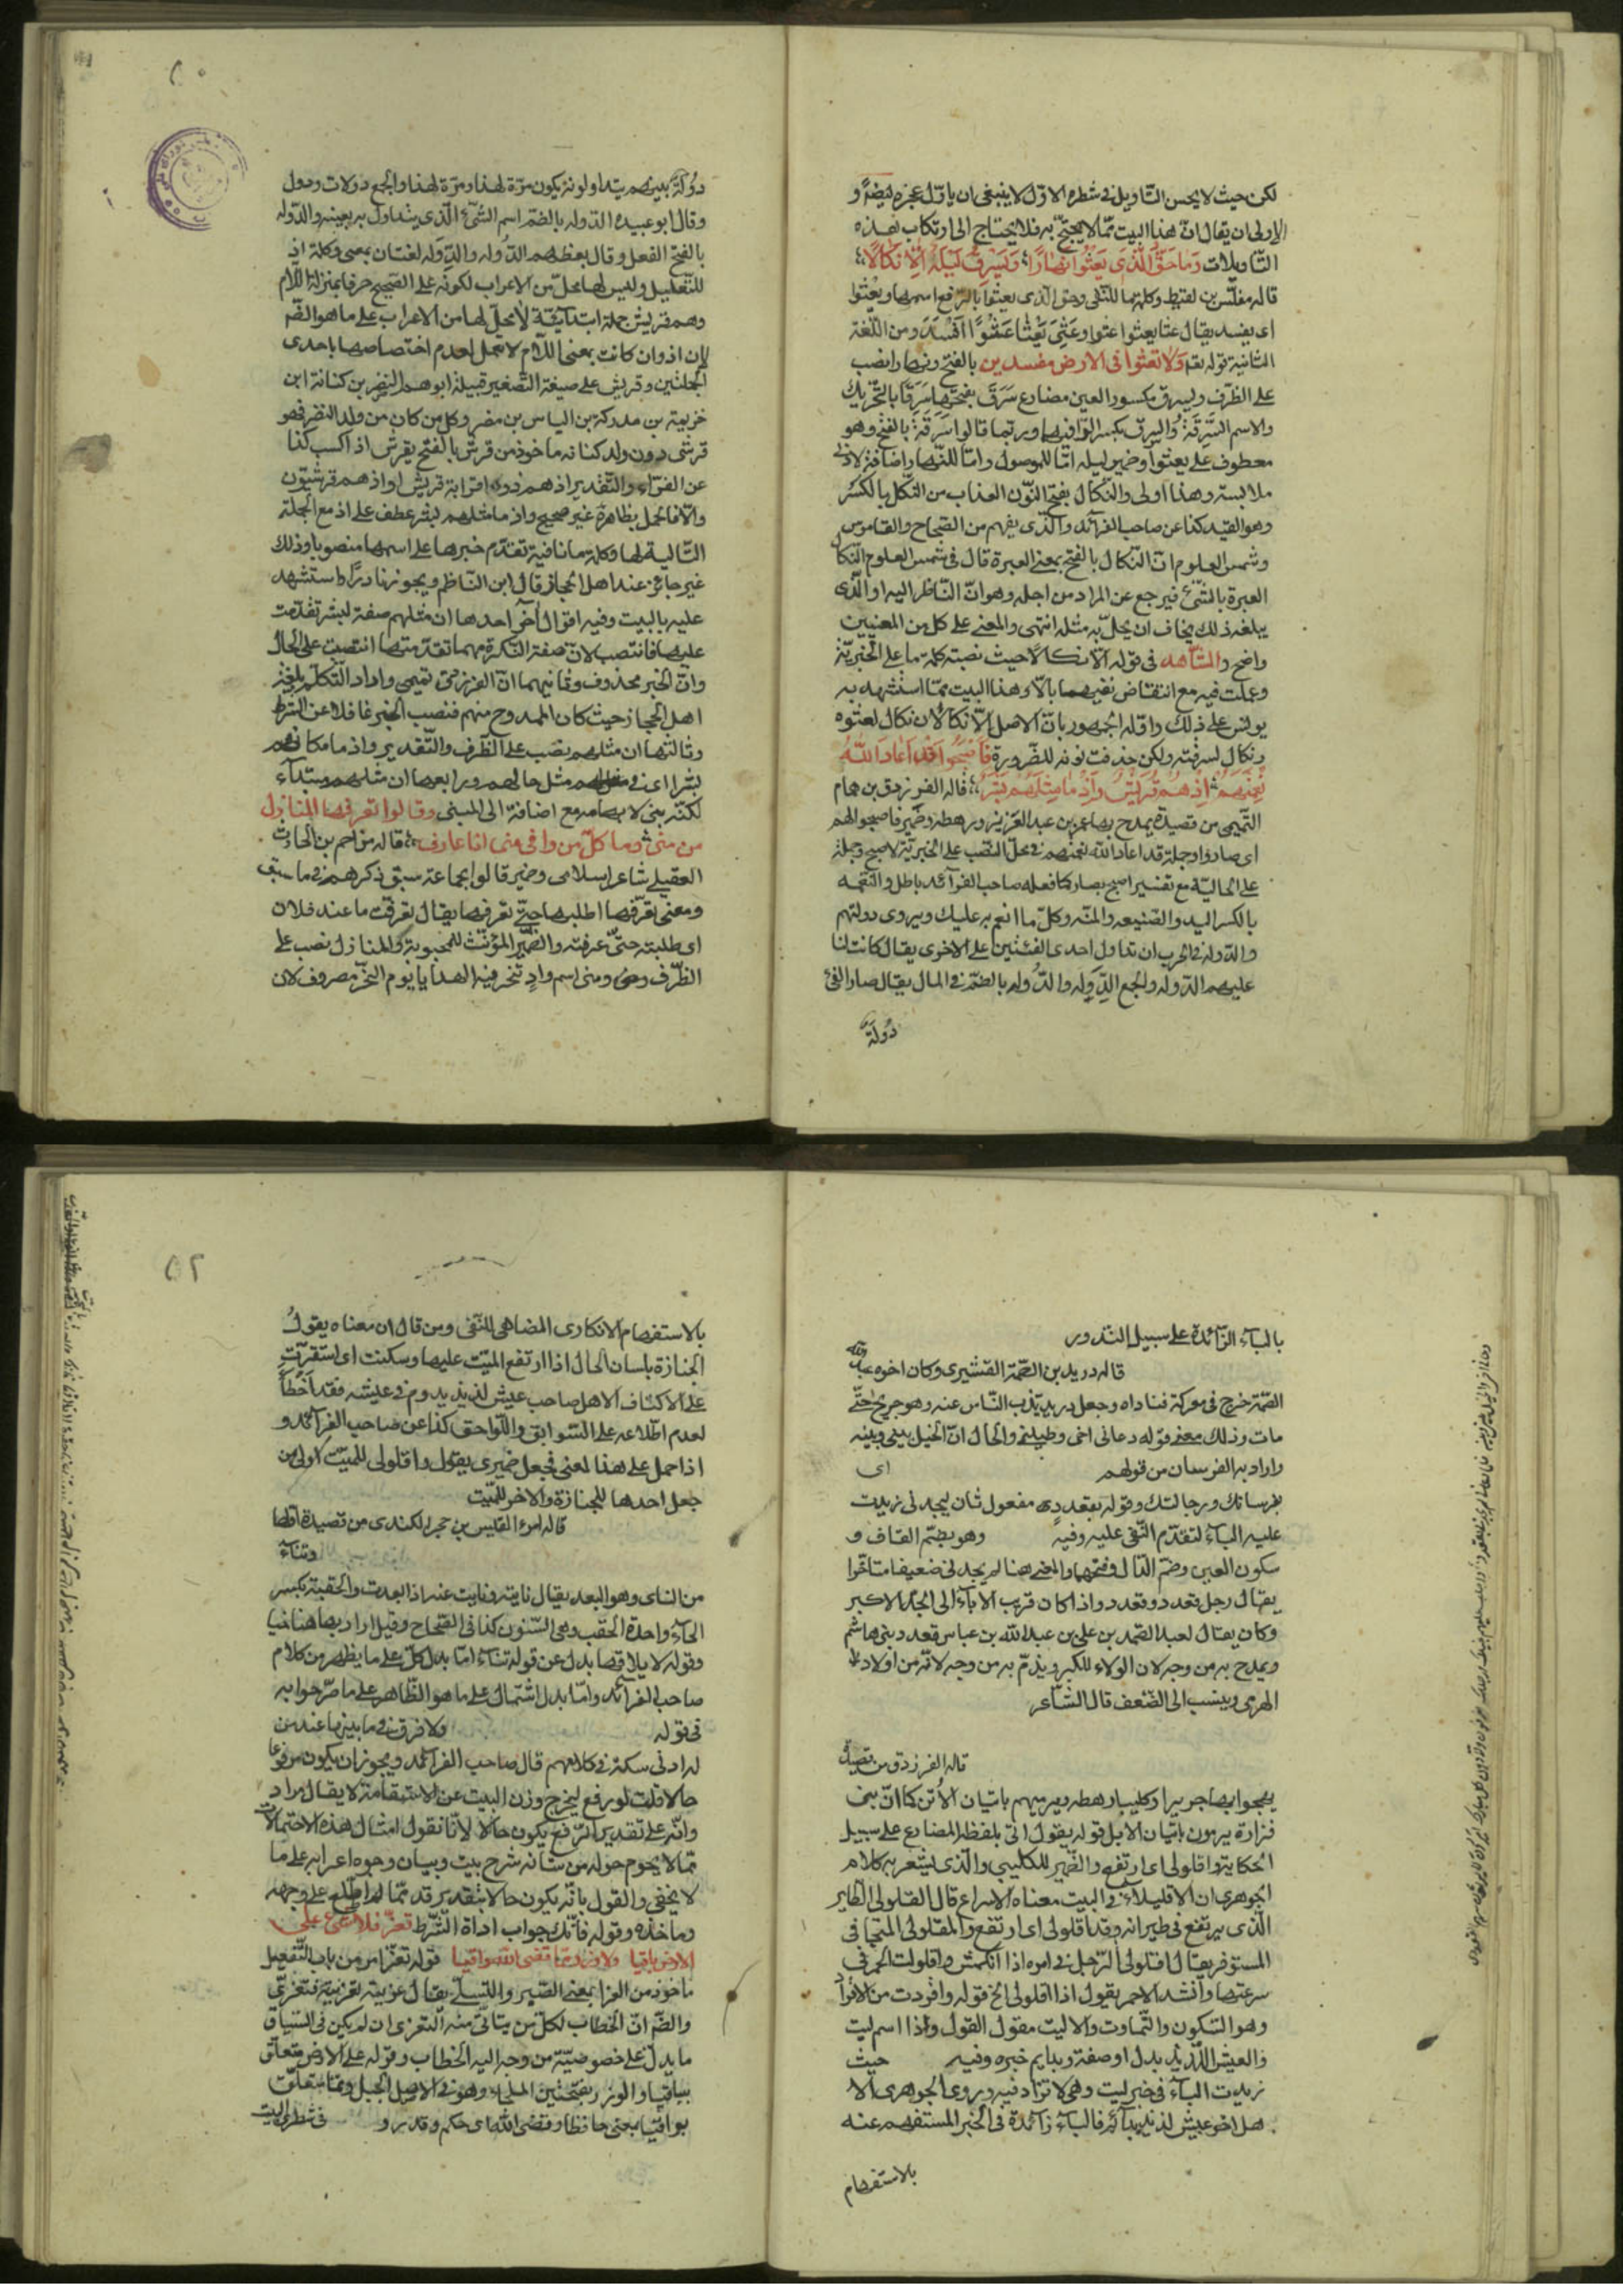 لكن حيث لا يحسن التأويل فى شطره الاول لا ينبغى ان ياول عجزه ايضا و
الاولى ان يقال ان هذا البيت مما لا يحتج به فلا يحتاج الى ارتكاب هذه
التأويلات وما حق الذى يعثوا نهارا ويسرق ليله الا نكالا
قاله مغلس بن لقيط وكلمة ما للنفى وحق الذى يعثوا بالرفع اسمها ويعثوا
اى يفسد يقال عثا يعثوا عثوا وعثى يعثا عثوا افسد ومن اللغة
الثانية قوله تعم ولا تعثوا فى الارض مفسدين بالفتح ونهارا نصب
على الظرف ويسرق مكسور العين مضارع سرق بفتحها سرقا بالتحريك
والاسم السرقة والسرق بكسر الراء فيهما وربما قالوا سرقة بالفتح وهو
معطوف على يعثوا وضمير ليله اما للموصول واما للنهار واضافته لادنى
ملابسة وهذا اولى والنكال بفتح النون العذاب من النكل بالكسر
وهو القيد كذا عن صاحب الفرائد والذى يفهم من الصحاح والقاموس
وشمس العلوم ان النكال بالفتح بمعنى العبرة قال فى شمس العلوم النكال
العبرة بالشئ فيرجع عن المراد من اجله وهو ان الناظر اليه او الذى
يبلغه ذلك يخاف ان يحل به مثله انتهى والمعنى على كل من المعنيين
واضح والشاهد فى قوله الا نكالا حيث نصبته كلمة ما على الخبرية
وعملت فيه مع انتقاض نفيها بالا وهذا البيت مما استشهد به
يونس على ذلك واوله الجمهور بان الاصل الا نكالان نكال لعثوه
ونكال لسرقته ولكن حذفت نونه للضرورة فاصبحوا قد اعاد الله
نعمتهم اذ هم قريش واذ ما مثلهم بشر قاله الفرزدق بن همام
التميمى من قصيدة يمدح بها عمر بن عبد العزيز ورهطه وضمير فاصبحوا لهم
اى صاروا وجملة قد اعاد الله نعمتهم فى محل النصب على الخبرية لاصبح وجملة
على الحالية مع تفسير اصبح بصار كما فعله صاحب الفرائد باطل والنعمة
بالكسر اليد والصنيعه والمنه وكل ما انعم به عليك ويروى دولتهم
والدوله فى الحرب ان تداول احدى الفئتين على الاخرى يقال كانت لنا
عليهم الدوله والجمع الدول والدوله بالضم فى المال يقال صار الفئ
دولة
٥٠
دولة بينهم يتداولونه يكون مرة لهذا ومرة لهذا والجمع دولات ودول
وقال ابو عبيده الدوله بالضم اسم الشئ الذى يتداول به بعينه والدوله
بالفتح الفعل وقال بعضهم الدوله والدوله لغتان بمعنى وكلمة اذ
للتعليل وليس لها محل من الاعراب لكونه على الصحيح حرفا بمنزلة اللام
وهم قريش جملة ابتدائية لا محل لها من الاعراب على ما هو الضم
لان اذ وان كانت بمعنى اللام لا تعمل لعدم اختصاصها باحدى
الجملتين وقريش على صيغة التصغير قبيلة ابوهم النضر بن كنانة ابن
خزيمة بن مدركة بن الياس بن مضر وكل من كان من ولد النضر فهو
قرشى دون ولد كنانه ماخوذ من قرش بالفتح يقرش اذا كسب كذا
عن الفراء والتقدير اذ هم ذوو قرابة قريش او اذ هم قرشيون
والا فالحمل بظاهره غير صحيح واذ ما مثلهم بشر عطف على اذ مع الجملة
التالية لها وكلمة ما نافية تقدم خبرها على اسمها منصوبا وذلك
غير جائز عند اهل الحجاز قال ابن الناظم ويجوز نادرا واستشهد
عليه بالبيت وفيه اقوال اخر احدها ان مثلهم صفة لبشر تقدمت
عليها فانتصب لان صفة النكرة مهما تقدمتها انتصبت على الحال
وان الخبر محذوف وثانيهما ان الفرزدق تميمى واراد التكلم بلغة
اهل الحجاز حيث كان الممدوح منهم فنصب الخبر غافلا عن الشرط
وثالثها ان مثلهم نصب على الظرف والتقدير واذ ما مكانهم
بشر اى فى مثل حالهم ورابعها ان مثلهم مبتدآء
لكنه بنى لابهامه مع اضافته الى المبنى وقالوا تعرفها المنازل
من منى وما كل من وافى منى انا عارف قاله مزاحم بن الحارث
العقيلى شاعر اسلامى وضمير قالوا لجماعة سبق ذكرهم فى ما سبق
ومعنى تعرفها اطلبها حتى تعرفها يقال تعرفت ما عند فلان
اى طلبته حتى عرفته والضمير المؤنث للمحبوبة والمنازل نصب على
الظرف ومنى اسم واد تنحر فيه الهدايا يوم النحر مصروف لان
بالبآء الزائدة على سبيل الندور
قاله دريد بن الصمة القشيرى وكان اخوه عبد الله
الصمة خرج فى معركة فناداه وجعل دريد يذب الناس عنه وهو جريح حتى
مات وذلك معنى قوله دعانى اخى والحال ان الخيل بينى وبينه
واراد به الفرسان من قولهم اى
بفرسانك ورجالتك وقوله بقعدد مفعول ثان ليجدنى زيدت
عليه الباء لتقدم النفى عليه وفيه وهو بضم القاف و
سكون العين وضم الدال وفتحها والمعنى هنا لم يجدنى ضعيفا متاخرا
يقال رجل قعدد وقعدد اذا كان قريب الآباء الى الجد الاكبر
وكان يقال لعبد الصمد بن على بن عبد الله بن عباس قعدد بنى هاشم
ويمدح به من وجه لان الولاء للكبر ويذم به من وجه لانه من اولاد
الهرمى وينسب الى الضعف قال الشاعر
قاله الفرزدق من قصيدة
يهجوا بها جريرا وكليبا رهطه ويرميهم باتيان الأتن كما ان بنى
فزارة يرمون باتيان الابل قوله يقول اتى بلفظ المضارع على سبيل
الحكاية واقلولى اى ارتفع والضمير للكليبى والذى يشعر به كلام
الجوهرى ان الاقليلاء فى البيت معناه الاسراع قال القلولى الطاير
الذى يرتفع فى طيرانه وقد اقلولى اى ارتفع والمقلولى المتجافى
المستوفز يقال اقلولى الرجل فى امره اذا انكمش واقلولت الحمر فى
سرعتها وانشد الاحمر يقول اذا اقلولى الخ قوله واقردت من الاقراد
وهو السكون والتماوت والا ليت مقول القول وذا اسم ليت
والعيش اللذيذ بدل او صفة وبدايم خبره وفيه حيث
زيدت الباء فى خبر ليت وهى لا تزاد فيه ويروى الجوهرى الا
هل اخو عيش لذيذ بدائم فالباء زائدة فى الخبر المستفهم عنه
بالاستفهام
٥٢
بالاستفهام الانكارى المضاهى للنفى ومن قال ان معناه يقول
الجنازة بلسان الحال اذا ارتفع الميت عليها وسكنت اى استقرت
على الاكتاف الا هل صاحب عيش لذيذ يدوم فى عيشه فقد اخطأ
لعدم اطلاعه على السوابق واللواحق كذا عن صاحب الفرائد و
اذا حمل على هذا المعنى فجعل ضميرى يقول واقلولى للميت اولى من
جعل احدها للجنازة والآخر للميت
قاله امرء القيس بن حجر الكندى من قصيدة اولها
وتناء
من الناى وهو البعد يقال نايته ونايت عنه اذا بعدت والحقبة بكسر
الحآء واحدة الحقب وهى السنون كذا فى الصحاح وقيل اراد بها هنا
وقوله لا يلاقها بدل عن قوله تناء اما بدل كل على ما يظهر من كلام
صاحب الفرائد واما بدل اشتمال على ما هو الظاهر على ما صرحوا به
فى قوله ولا فرق فى ما بينهما عند من
له ادنى سكة فى كلامهم قال صاحب الفرائد ويجوز ان يكون مرفوعا
حالا قلت لو رفع ليخرج وزن البيت عن الاستقامة لا يقال مراد
وانه على تقدير الرفع يكون حالا لانا نقول امثال هذه الاحتمالات
مما لا يحوم حوله من شانه شرح بيت وبيان وجوه اعرابه على ما
لا يخفى والقول بانه يكون حالا بتقدير قد مما لم اطلع على وجهه
وماخذه وقوله فانك جواب اداة الشرط تعز فلا شئ على
الارض باقيا ولا وزر مما قضى الله واقيا قوله تعز امر من باب التفعل
ماخوذ من العزا بمعنى الصبر والتسلى يقال عزيته تعزية فتعزى
والضم ان الخطاب لكل من يتاتى منه التعزى ان لم يكن فى السياق
ما يدل على خصوصية من وجه اليه الخطاب وقوله على الارض متعلق
بباقيا والوزر بفتحتين الملجاء وهو فى الاصل الجبل ومما متعلق
بواقيا بمعنى حافظا وقضى الله اى حكم وقدر و فى شطرى البيت